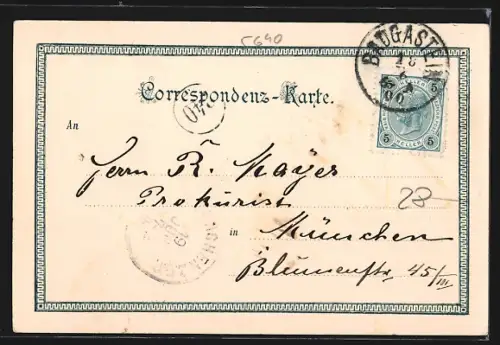 5640
BADGASTEIN
18
00
Correspondenz-Karte.
40
5 5
HELLER
An
Herrn R. Mayer
Prokurist
in München
28
19
JUL
Blumenstr 45/III